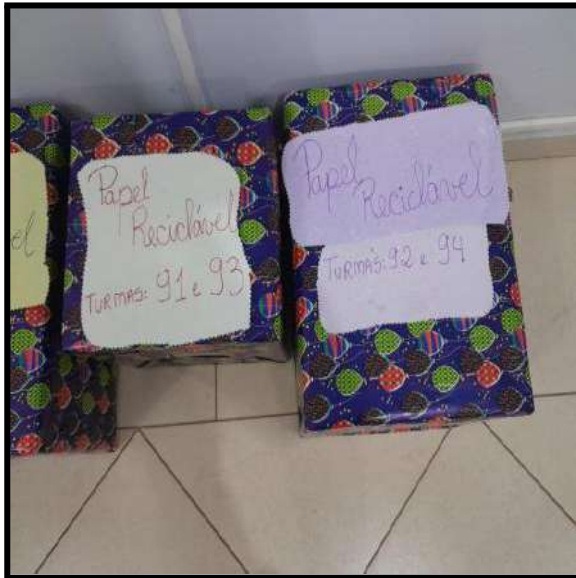 el
Papel
Reciclável
TURMAS: 91 e 93
Papel
Reciclável
TURMAS: 92 e 94